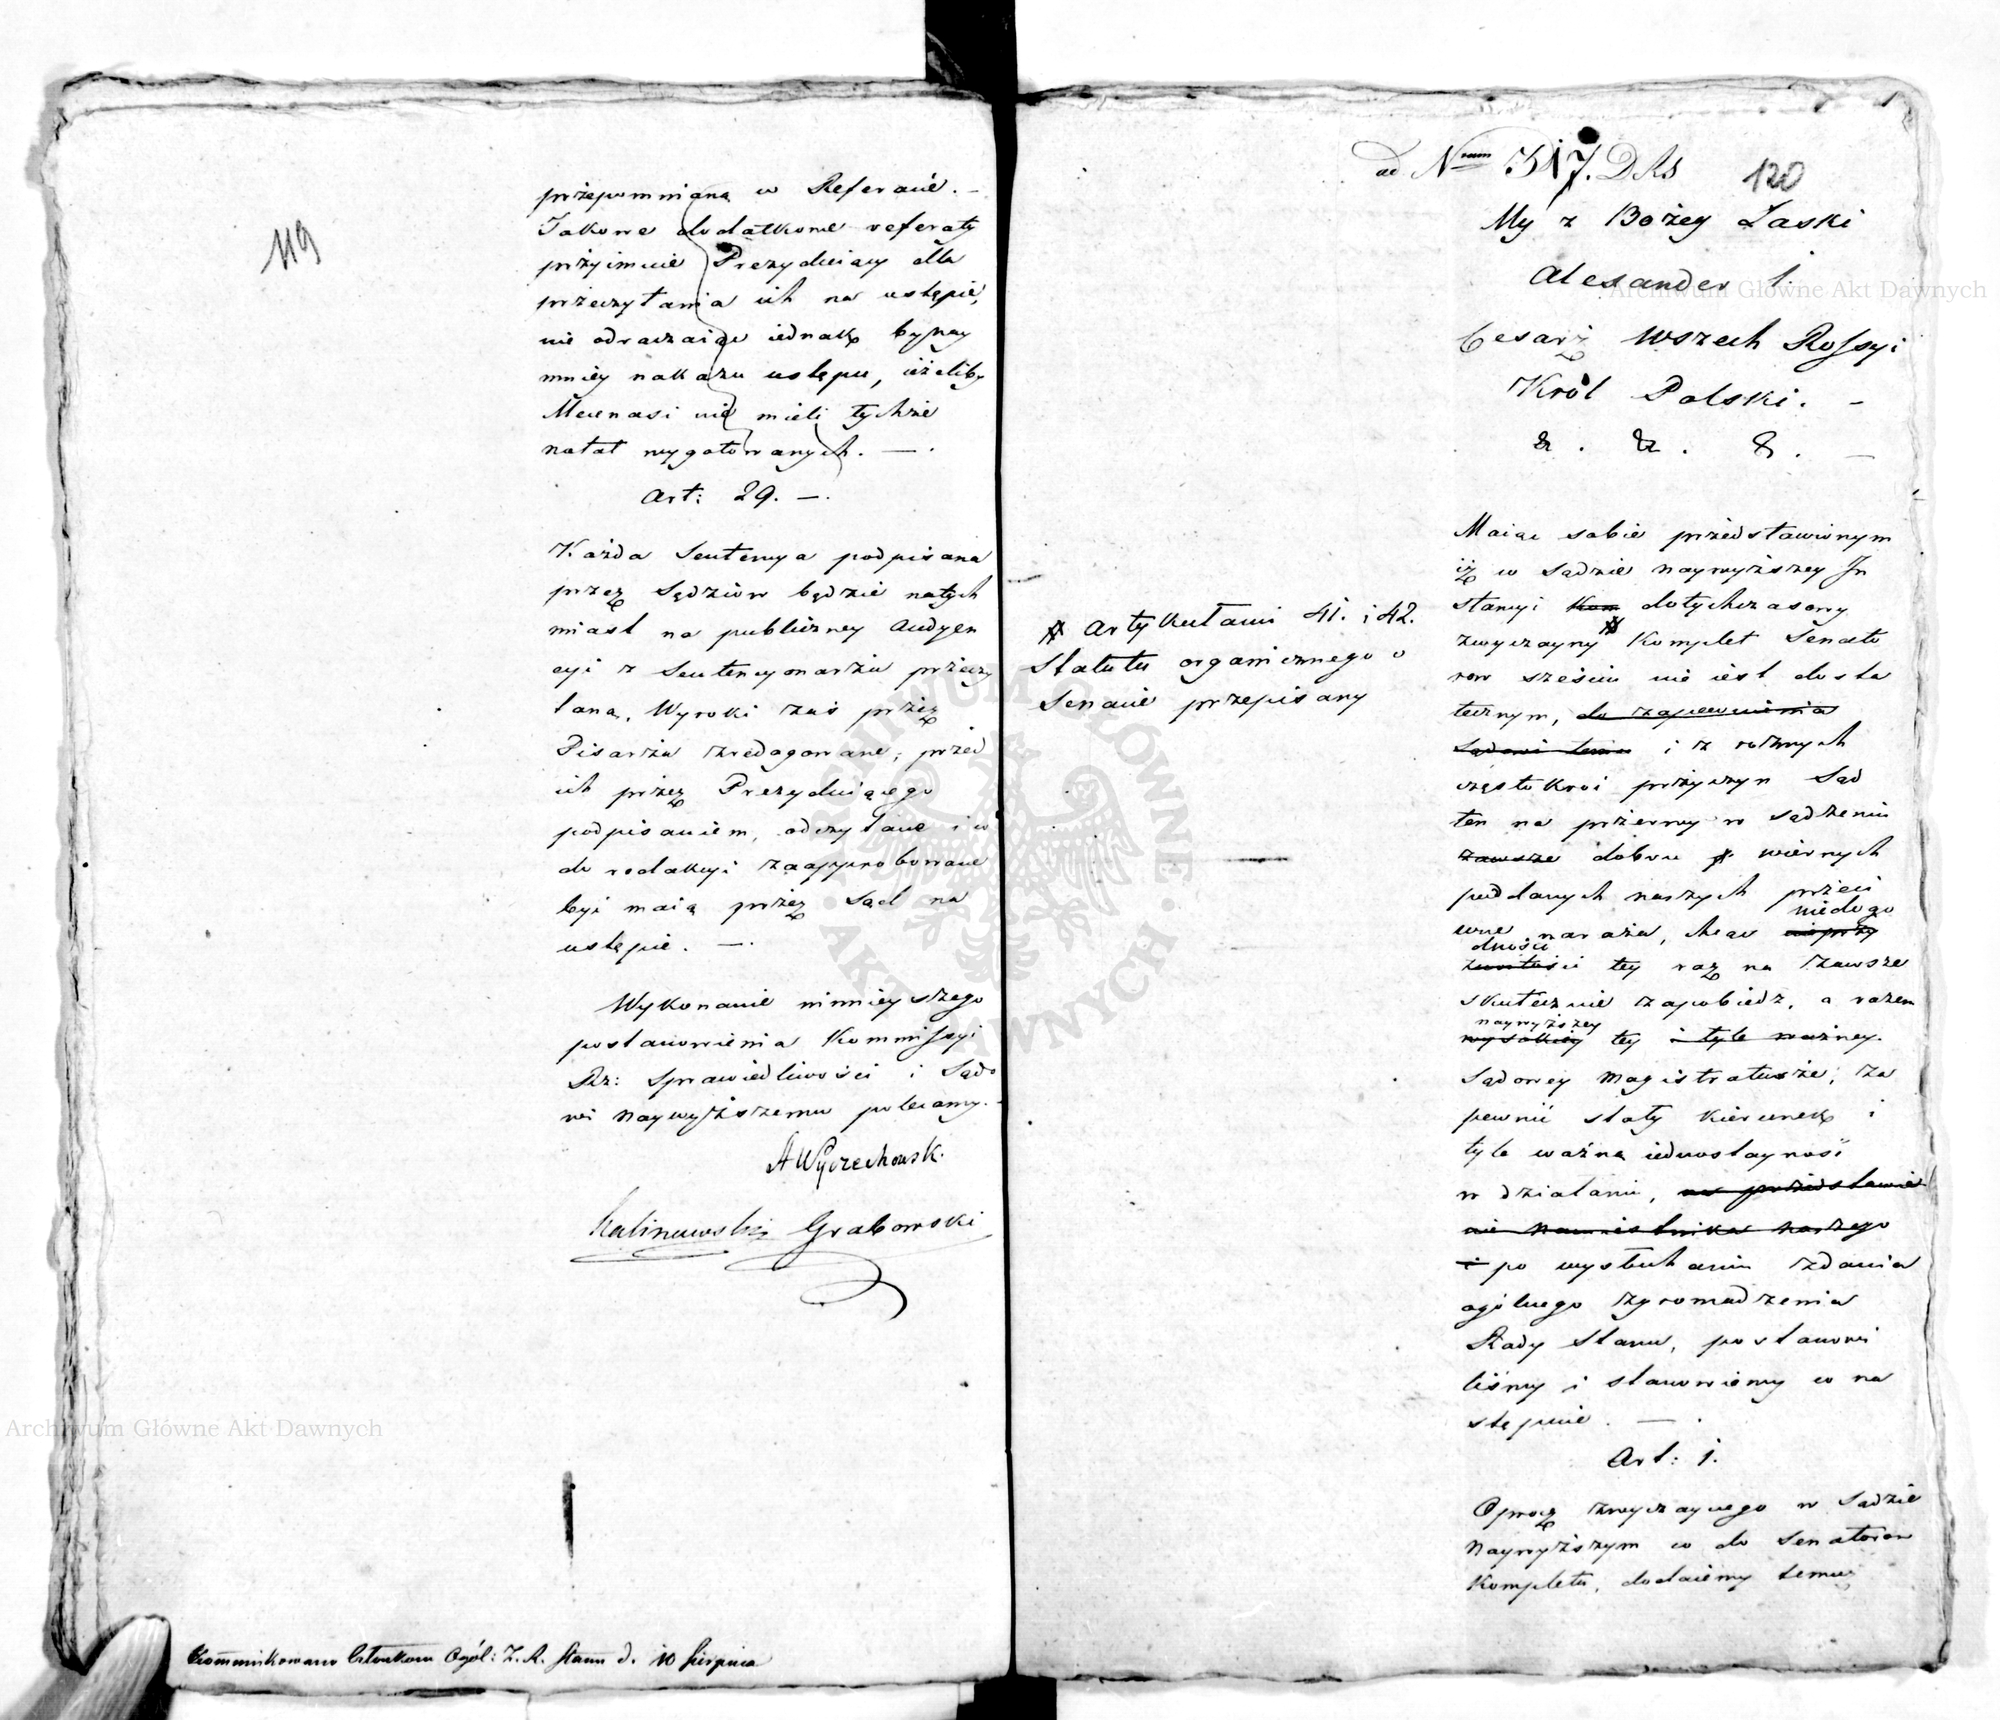 119
przepomnianą w Referacie. —
Jakowe dodatkowe referaty
przyimuie Prezyduiący dla
przeczytania ich na ustępie,
nie odraczaiąc iednak bynay
mniey nakazu ustępu, ieżeliby
Mecenasi nie mieli tychże
notat wygotowanych. — .
Art: 29. — .
Każda Sentencya podpisana
przez Sędziów będzie natych
miast na publiczney Audyen
cyi z Sentencyonarza przeczy
tana, Wyroki zaś przez
Pisarza zredagowane, przed
ich przez Prezyduiącego
podpisaniem, odczytane i co
do redakcyi zaapprobowane
być maią przez Sąd na
ustępie. — .
Wykonanie ninieyszego
postanowienia Kommissyi
Rz: Sprawiedliwości i Sądo
wi Naywyższemu polecamy. —
A Wyczechowsk.
Kalinowski Grabowski
Kommunikowano Członkom Ogól: Z. R. Stanu d. 10 Sierpnia
ad Nrum 517. DRS
120
My z Bożey Łaski
Alexander I.
Cesarz Wszech Rossyi
Król Polski. —
& . & . & . —
Maiąc sobie przedstawionym
iż w Sądzie Naywyższey In
stancyi Kom dotychczasowy
zwyczayny # Komplet Senato
row sześciu nie iest dosta
tecznym, do zapewnienia
Sądowi temu i z rożnych
częstokroć przyczyn Sąd
ten na przerwy w sądzeniu
zawsze dobru wiernych
poddanych naszych przeci
niedogo
wne naraża, chcąc nieprzy
dności
zwoitości tey raz na zawsze
skutecznie zapobiedz, a razem
naywyższey
wysokiey tey i tyle ważney
Sądowey Magistraturze, za
pewnić stały kierunek i
tyle ważną iednostayność
w działaniu, na przedstawie
nie Namiestnika naszego
i po wysłuchaniu zdania
ogólnego zgromadzenia
Rady Stanu, postanowi
liśmy i stanowiemy co na
stępuie. — .
Art: 1.
Oprócz zwyczaynego w Sądzie
Naywyższym co do Senatorow
Kompletu, dodaiemy temuż
# Artykułami 41. i 42.
Statutu organicznego o
Senacie przepisany
Archiwum Główne Akt Dawnych
Archiwum Główne Akt Dawnych
ARCHIWUM GŁÓWNE · AKT DAWNYCH ·